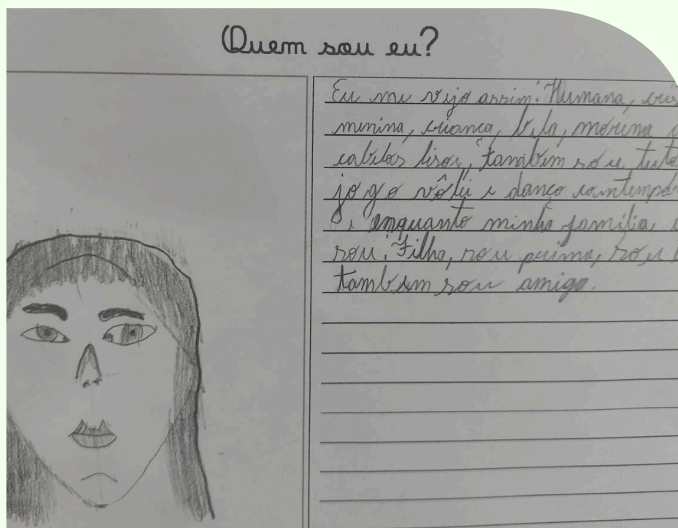 Quem sou eu?
Eu me vejo assim: Humana,
menina, criança, bela, morena
cabelos lisos, também sou
jogo vôlei e danço
enquanto minha família,
sou: Filha, sou prima, sou
também sou amiga.